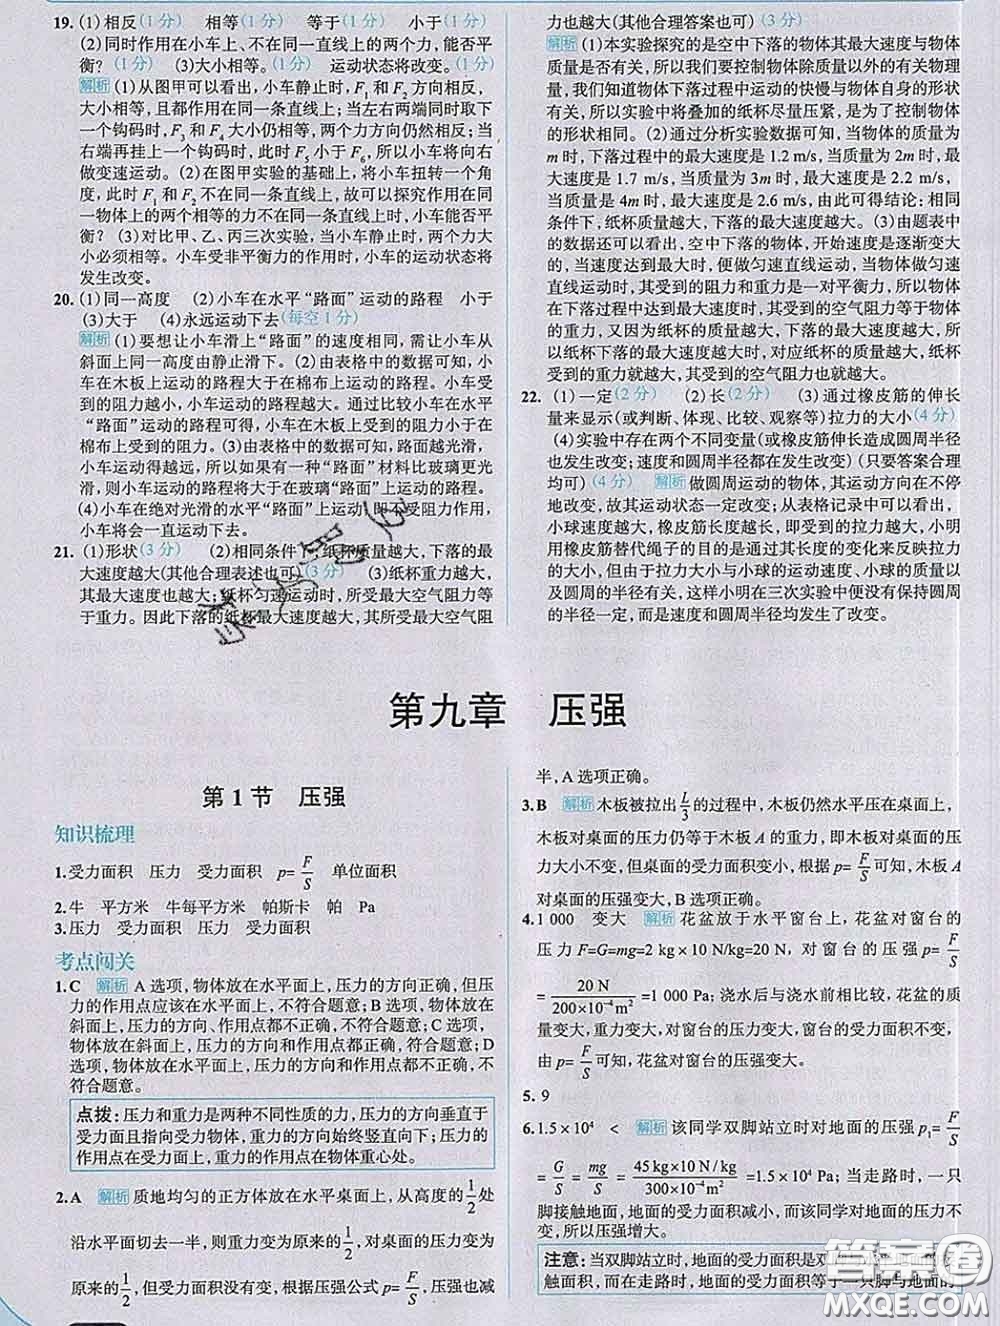 19. (1)相反(1分) 相等(1分) 等于(1分) 小于(1分)
(2)同时作用在小车上、不在同一直线上的两个力,能否平
衡?(1分) (3)大小相等。(1分) 运动状态将改变。(1分)
解析 (1)从图甲可以看出,小车静止时,F₁和F₂方向相反,
大小相等,且都作用在同一条直线上;当左右两端同时取下
一个钩码时,F₃和F₄大小仍相等,两个力方向仍然相反;当
右端再挂上一个钩码时,此时F₅小于F₆,所以小车将向右
做变速运动。(2)在图甲实验的基础上,将小车扭转一个角
度,此时F₁和F₂不在同一条直线上,故可以探究作用在同
一物体上的两个相等的力不在同一条直线时,小车能否平
衡?(3)对比甲、乙、丙三次实验,当小车静止时,两个力大
小必须相等。小车受非平衡力的作用时,小车的运动状态将
发生改变。
20. (1)同一高度 (2)小车在水平“路面”运动的路程 小于
(3)大于 (4)永远运动下去(每空1分)
解析 (1)要想让小车滑上“路面”的速度相同,需让小车从
斜面上同一高度由静止滑下。(2)由表格中的数据可知,小
车在木板上运动的路程大于在棉布上运动的路程。小车受
到的阻力越小,小车运动的路程越大。通过比较小车在水平
“路面”运动的路程可得,小车在木板上受到的阻力小于在
棉布上受到的阻力。(3)由表格中的数据可知,路面越光滑,
小车运动得越远,所以如果有一种“路面”材料比玻璃更光
滑,则小车运动的路程将大于在玻璃“路面”上运动的路程。
(4)小车在绝对光滑的水平“路面”上运动,即不受阻力作用,
小车将会一直运动下去。
21. (1)形状(3分) (2)相同条件下,纸杯质量越大,下落的最
大速度越大(其他合理表述也可)(3分) (3)纸杯重力越大,
其最大速度也越大;纸杯匀速运动时,所受最大空气阻力等
于重力。因此下落的纸杯最大速度越大,其所受最大空气阻
力也越大(其他合理答案也可)(3分)
解析 (1)本实验探究的是空中下落的物体其最大速度与物体
质量是否有关,所以我们要控制物体除质量以外的有关物理
量,我们知道物体下落过程中运动的快慢与物体自身的形状
有关,所以实验中将叠加的纸杯尽量压紧,是为了控制物体
的形状相同。(2)通过分析实验数据可知,当物体的质量为
m时,下落过程中的最大速度是1.2 m/s,当质量为2m时,最
大速度是1.7 m/s,当质量为3m时,最大速度是2.2 m/s,当
质量是4m时,最大速度是2.6 m/s,由此可得结论:相同
条件下,纸杯质量越大,下落的最大速度越大。(3)由题表中
的数据还可以看出,空中下落的物体,开始速度是逐渐变大
的,当速度达到最大时,便做匀速直线运动,当物体做匀速
直线运动时,受到的阻力和重力是一对平衡力,所以物体
在下落过程中达到最大速度时,受到的空气阻力等于物体
的重力,又因为纸杯的质量越大,下落的最大速度越大,所
以纸杯下落的最大速度越大时,对应纸杯的质量越大,纸杯
受到的重力就越大,其受到的空气阻力也就越大。
22. (1)一定(2分) (2)长(2分) (3)通过橡皮筋的伸长
量来显示(或判断、体现、比较、观察等)拉力的大小(4分)
(4)实验中存在两个不同变量(或橡皮筋伸长造成圆周半径
也发生改变;速度和圆周半径都在发生改变)(只要答案合理
均可)(4分) 解析 做圆周运动的物体,其运动方向在不停
地改变,故其运动状态一定改变;从表格记录中可以看出,
小球速度越大,橡皮筋长度越长,即受到的拉力越大,小明
用橡皮筋替代绳子的目的是通过其长度的变化来反映拉力
的大小,但由于拉力大小与小球的运动速度、小球的质量以
及圆周的半径有关,这样小明在三次实验中便没有保持圆周
的半径一定,而是速度和圆周半径均发生了改变。
第九章 压强
第1节 压强
知识梳理
1.受力面积 压力 受力面积 p=F/S 单位面积
2.牛 平方米 牛每平方米 帕斯卡 帕 Pa
3.压力 受力面积 压力 受力面积
考点闯关
1.C 解析 A选项,物体放在水平面上,压力的方向正确,但压
力的作用点应该在水平面上,不符合题意;B选项,物体放在
斜面上,压力的方向、作用点都不正确,不符合题意;C选项,
物体放在斜面上,压力的方向和作用点都正确,符合题意;D
选项,物体放在水平面上,压力的方向和作用点都不正确,不
符合题意。
点拨:压力和重力是两种不同性质的力,压力的方向垂直于
受力面且指向受力物体,重力的方向始终竖直向下;压力的
作用点在受力面上,重力的作用点在物体重心处。
2.A 解析 质地均匀的正方体放在水平桌面上,从高度的1/2处
沿水平面切去一半,则重力变为原来的1/2,对桌面的压力变为
原来的1/2,但受力面积没有变,根据压强公式p=F/S,压强也减
半,A选项正确。
3.B 解析 木板被拉出l/3的过程中,木板仍然水平压在桌面上,
木板对桌面的压力仍等于木板A的重力,即木板对桌面的压
力大小不变,但桌面的受力面积变小,根据p=F/S可知,木板A
对桌面的压强变大,B选项正确。
4.1 000 变大 解析 花盆放于水平窗台上,花盆对窗台的
压力F=G=mg=2 kg×10 N/kg=20 N,对窗台的压强p=F/S
=20 N/(200×10⁻⁴ m²)=1 000 Pa;浇水后与浇水前相比较,花盆的质
量变大,重力变大,对窗台的压力变大,窗台的受力面积不变,
由p=F/S可知,花盆对窗台的压强变大。
5. 9
6.1.5×10⁴ < 解析 该同学双脚站立时对地面的压强p₁=F/S
=G/S=mg/S=45 kg×10 N/kg/(300×10⁻⁴ m²)=1.5×10⁴ Pa;当走路时,一只
脚接触地面,地面的受力面积减小,而该同学对地面的压力不
变,所以压强增大。
注意:当双脚站立时,地面的受力面积是双
触面积,而在走路时,地面的受力面积等于一只脚与地面的
答案圈
MXQE.COM